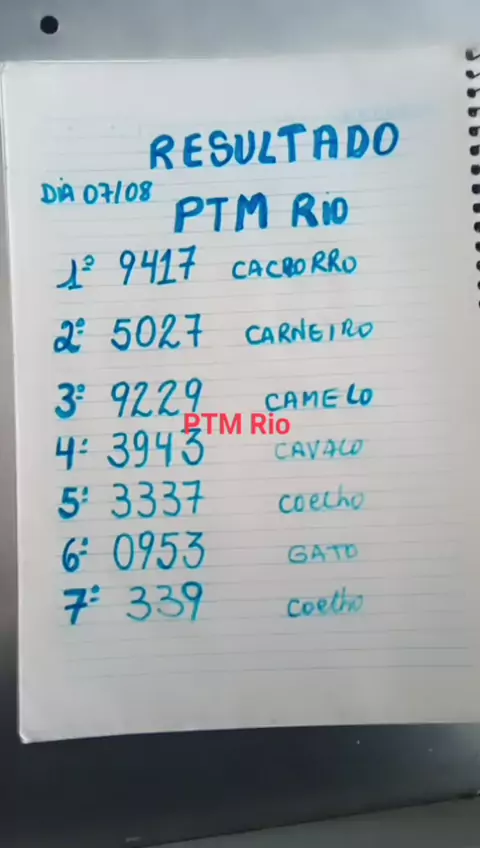 RESULTADO
DIA 07/08
PTM RIO
1º 9417 CACHORRO
2º 5027 CARNEIRO
3º 9229 CAMELO
PTM Rio
4º 3943 CAVALO
5º 3337 Coelho
6º 0953 GATO
7º 339 Coelho